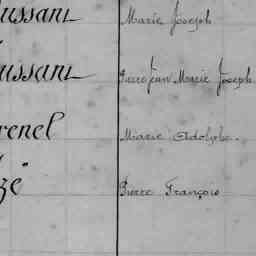 ussani Marie Joseph
ussani Pierre Jean Marie Joseph
renel Marie Adolphe.
zé Pierre François